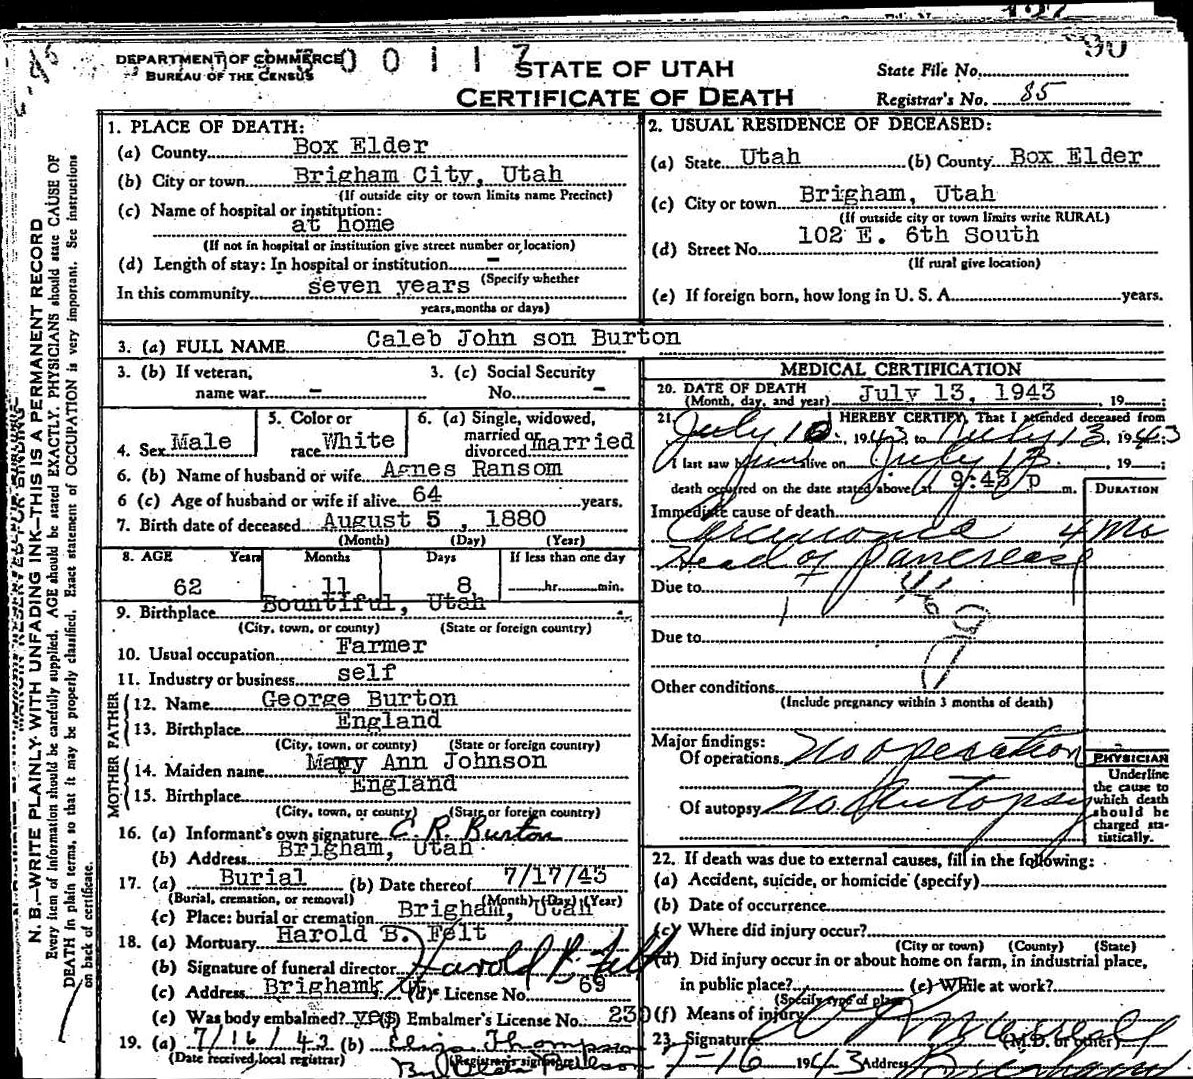 DEPARTMENT OF COMMERCE
BUREAU OF THE CENSUS
0 0 1 1 7
STATE OF UTAH
CERTIFICATE OF DEATH
90
State File No.
Registrar's No. 85
N. B.—WRITE PLAINLY WITH UNFADING INK—THIS IS A PERMANENT RECORD
Every item of information should be carefully supplied. AGE should be stated EXACTLY. PHYSICIANS should state CAUSE OF
DEATH in plain terms, so that it may be properly classified. Exact statement of OCCUPATION is very important. See instructions
on back of certificate.
1. PLACE OF DEATH:
(a) County Box Elder
(b) City or town Brigham City, Utah
(If outside city or town limits name Precinct)
(c) Name of hospital or institution:
at home
(If not in hospital or institution give street number or location)
(d) Length of stay: In hospital or institution –
(Specify whether
In this community seven years
years, months or days)
2. USUAL RESIDENCE OF DECEASED:
(a) State Utah (b) County Box Elder
(c) City or town Brigham, Utah
(If outside city or town limits write RURAL)
(d) Street No. 102 E. 6th South
(If rural give location)
(e) If foreign born, how long in U. S. A. years.
3. (a) FULL NAME Caleb John son Burton
3. (b) If veteran,
name war –
3. (c) Social Security
No. –
4. Sex Male
5. Color or
race White
6. (a) Single, widowed,
married or
divorced married
6. (b) Name of husband or wife Agnes Ransom
6 (c) Age of husband or wife if alive 64 years.
7. Birth date of deceased August 5, 1880
(Month) (Day) (Year)
8. AGE Years Months Days If less than one day
62 11 8 hr. min.
9. Birthplace Bountiful, Utah
(City, town, or county) (State or foreign country)
10. Usual occupation Farmer
11. Industry or business self
FATHER
12. Name George Burton
13. Birthplace England
(City, town, or county) (State or foreign country)
MOTHER
14. Maiden name Mary Ann Johnson
15. Birthplace England
(City, town, or county) (State or foreign country)
16. (a) Informant's own signature C. R. Burton
(b) Address Brigham, Utah
17. (a) Burial (b) Date thereof 7/17/43
(Burial, cremation, or removal) (Month) (Day) (Year)
(c) Place: burial or cremation Brigham, Utah
18. (a) Mortuary Harold B. Felt
(b) Signature of funeral director Harold B. Felt
(c) Address Brigham, Ut (d) License No. 69
(e) Was body embalmed? yes (f) Embalmer's License No. 230
19. (a) 7/16/43 (b) Thompson
(Date received local registrar) (Registrar's signature)
MEDICAL CERTIFICATION
20. DATE OF DEATH
(Month, day, and year) July 13, 1943, 19
21. I HEREBY CERTIFY, That I attended deceased from
July 10, 1943 to July 13, 1943
I last saw him alive on July 13, 19
death occurred on the date stated above, at 9:45 p m.
DURATION
Immediate cause of death
Carcinoma 4 Mo
Head of pancreas
Due to
Due to
Other conditions
(Include pregnancy within 3 months of death)
Major findings:
Of operations no operation
Of autopsy no Autopsy
PHYSICIAN
Underline
the cause to
which death
should be
charged sta-
tistically.
22. If death was due to external causes, fill in the following:
(a) Accident, suicide, or homicide (specify)
(b) Date of occurrence
(c) Where did injury occur?
(City or town) (County) (State)
(d) Did injury occur in or about home on farm, in industrial place,
in public place? (e) While at work?
(Specify type of place)
(f) Means of injury
23. Signature (M.D. or other)
7-16 1943 Address Brigham